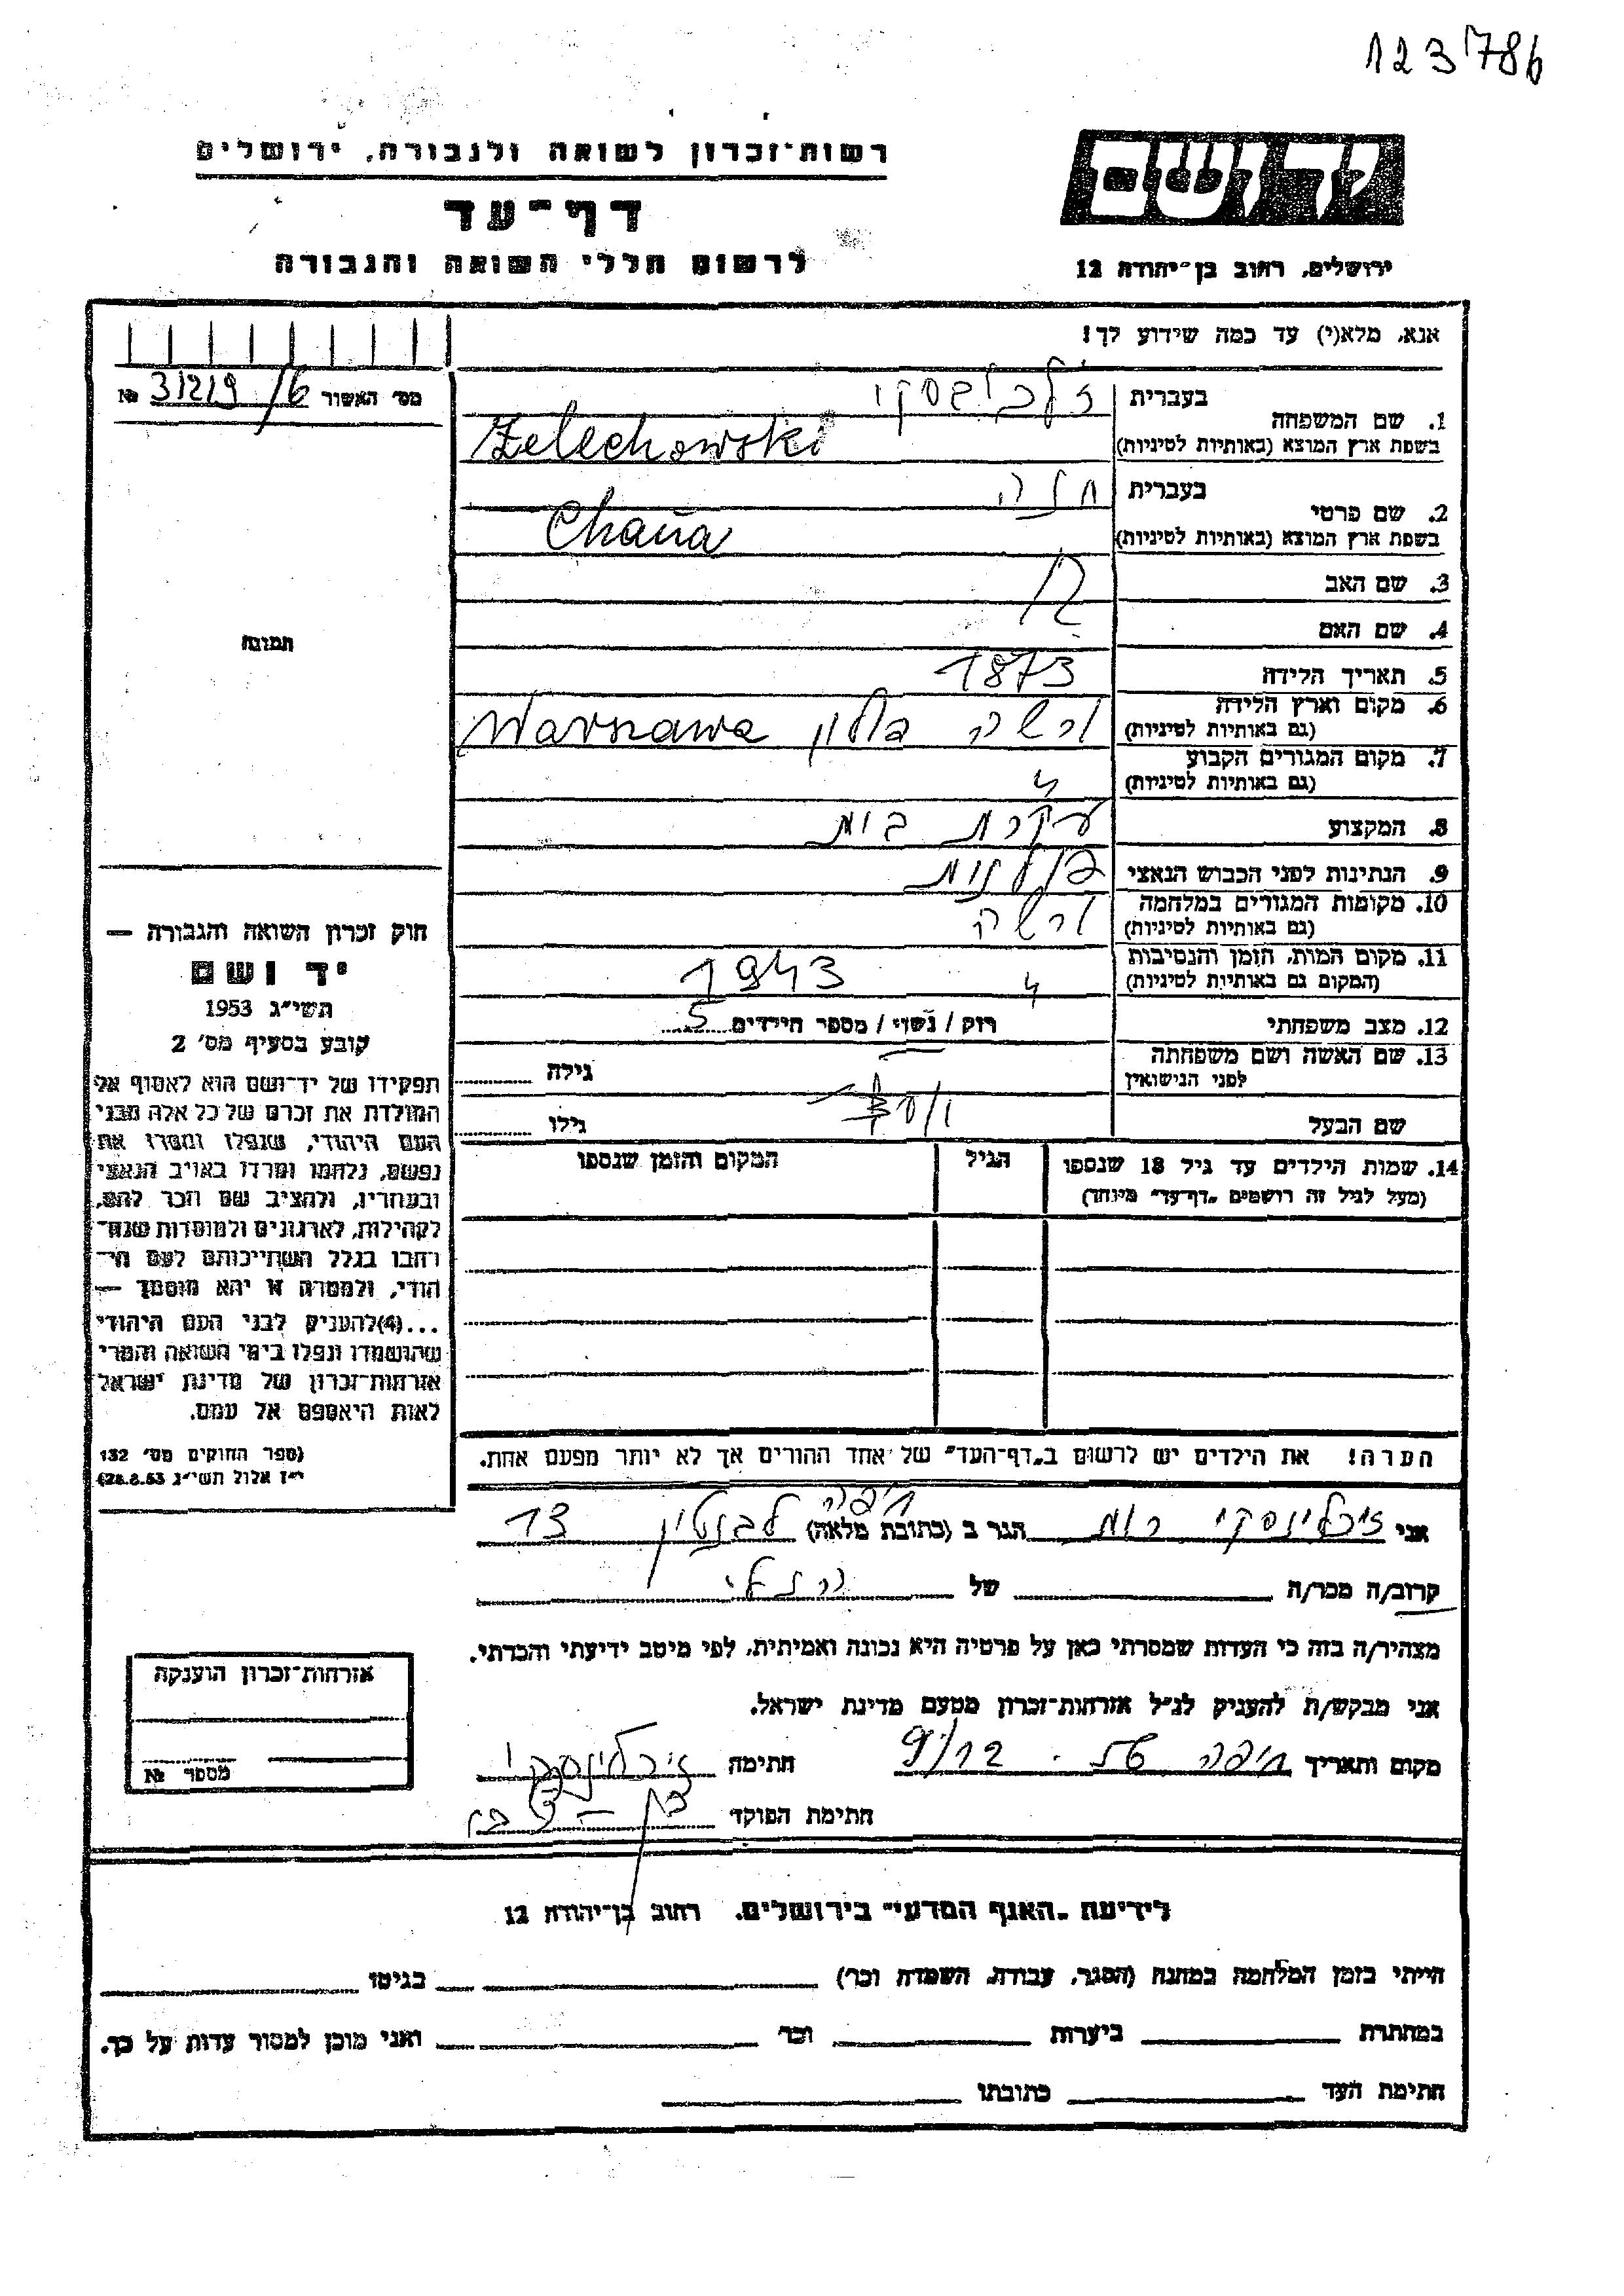 123786
רשות־זכרון לשואה ולגבורה, ירושלים
יד ושם
דף־עד
לרשום חללי השואה והגבורה
ירושלים, רחוב בן־יהודה 12
אנא, מלא(י) עד כמה שידוע לך!
מס׳ האשור № 31219/6
1. שם המשפחה
בעברית זלכובסקי
בשפת ארץ המוצא (באותיות לטיניות) Zelechowski
2. שם פרטי
בעברית חנה
בשפת ארץ המוצא (באותיות לטיניות) Chana
3. שם האב
4. שם האם
5. תאריך הלידה 1873
6. מקום וארץ הלידה
(גם באותיות לטיניות) ורשה פולין Warszawa
7. מקום המגורים הקבוע
(גם באותיות לטיניות) "
8. המקצוע עקרת בית
9. הנתינות לפני הכבוש הנאצי פולנית
10. מקומות המגורים במלחמה
(גם באותיות לטיניות) ורשה
11. מקום המות, הזמן והנסיבות
(המקום גם באותיות לטיניות) " 1943
12. מצב משפחתי רוק / נשוי / מספר הילדים 5
13. שם האשה ושם משפחתה
לפני הנישואין גילה
שם הבעל גילו
14. שמות הילדים עד גיל 18 שנספו הגיל המקום והזמן שנספו
(מעל לגיל זה רושמים „דף־עד״ מיוחד)
תמונה
חוק זכרון השואה והגבורה —
יד ושם
תשי״ג 1953
קובע בסעיף מס׳ 2
תפקידו של יד־ושם הוא לאסוף אל
המולדת את זכרם של כל אלה מבני
העם היהודי, שנפלו ומסרו את
נפשם, נלחמו ומרדו באויב הנאצי
ובעוזריו, ולהציב שם וזכר להם,
לקהילות, לארגונים ולמוסדות שנח־
רבו בגלל השתייכותם לעם הי־
הודי, ולמטרה זו יהא מוסמך —
...(4)להעניק לבני העם היהודי
שהושמדו ונפלו בימי השואה והמרי
אזרחות־זכרון של מדינת ישראל
לאות היאספם אל עמם.
(ספר החוקים מס׳ 132
י״ז אלול תשי״ג 28.8.53)
הערה! את הילדים יש לרשום ב„דף־העד״ של אחד ההורים אך לא יותר מפעם אחת.
אני זיכלינסקי רות הגר ב (כתובת מלאה) חיפה לבונטין 13
קרוב/ה מכר/ה של
מצהיר/ה בזה כי העדות שמסרתי כאן על פרטיה היא נכונה ואמיתית, לפי מיטב ידיעתי והכרתי.
אני מבקש/ת להעניק לנ״ל אזרחות־זכרון מטעם מדינת ישראל.
מקום ותאריך חיפה 9/12 חתימה זיכלינסקי
חתימת הפוקד
אזרחות־זכרון הוענקה
מספר №
לידיעת „האגף המדעי״ בירושלים, רחוב בן־יהודה 12
הייתי בזמן המלחמה במחנה (הסגר, עבודה, השמדה וכו׳) בגיטו
במחתרת ביערות וכו׳ ואני מוכן למסור עדות על כך.
חתימת העד כתובתו